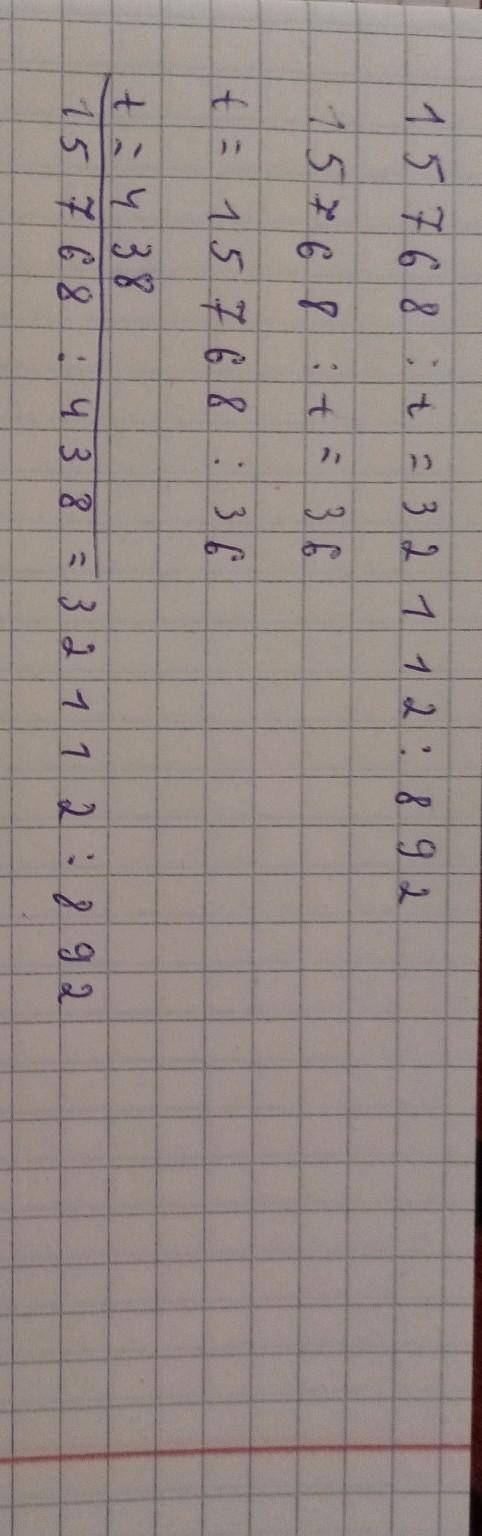 15768 : t = 32112 : 892
15768 : t = 36
t = 15768 : 36
t = 438
15768 : 438 = 32112 : 892